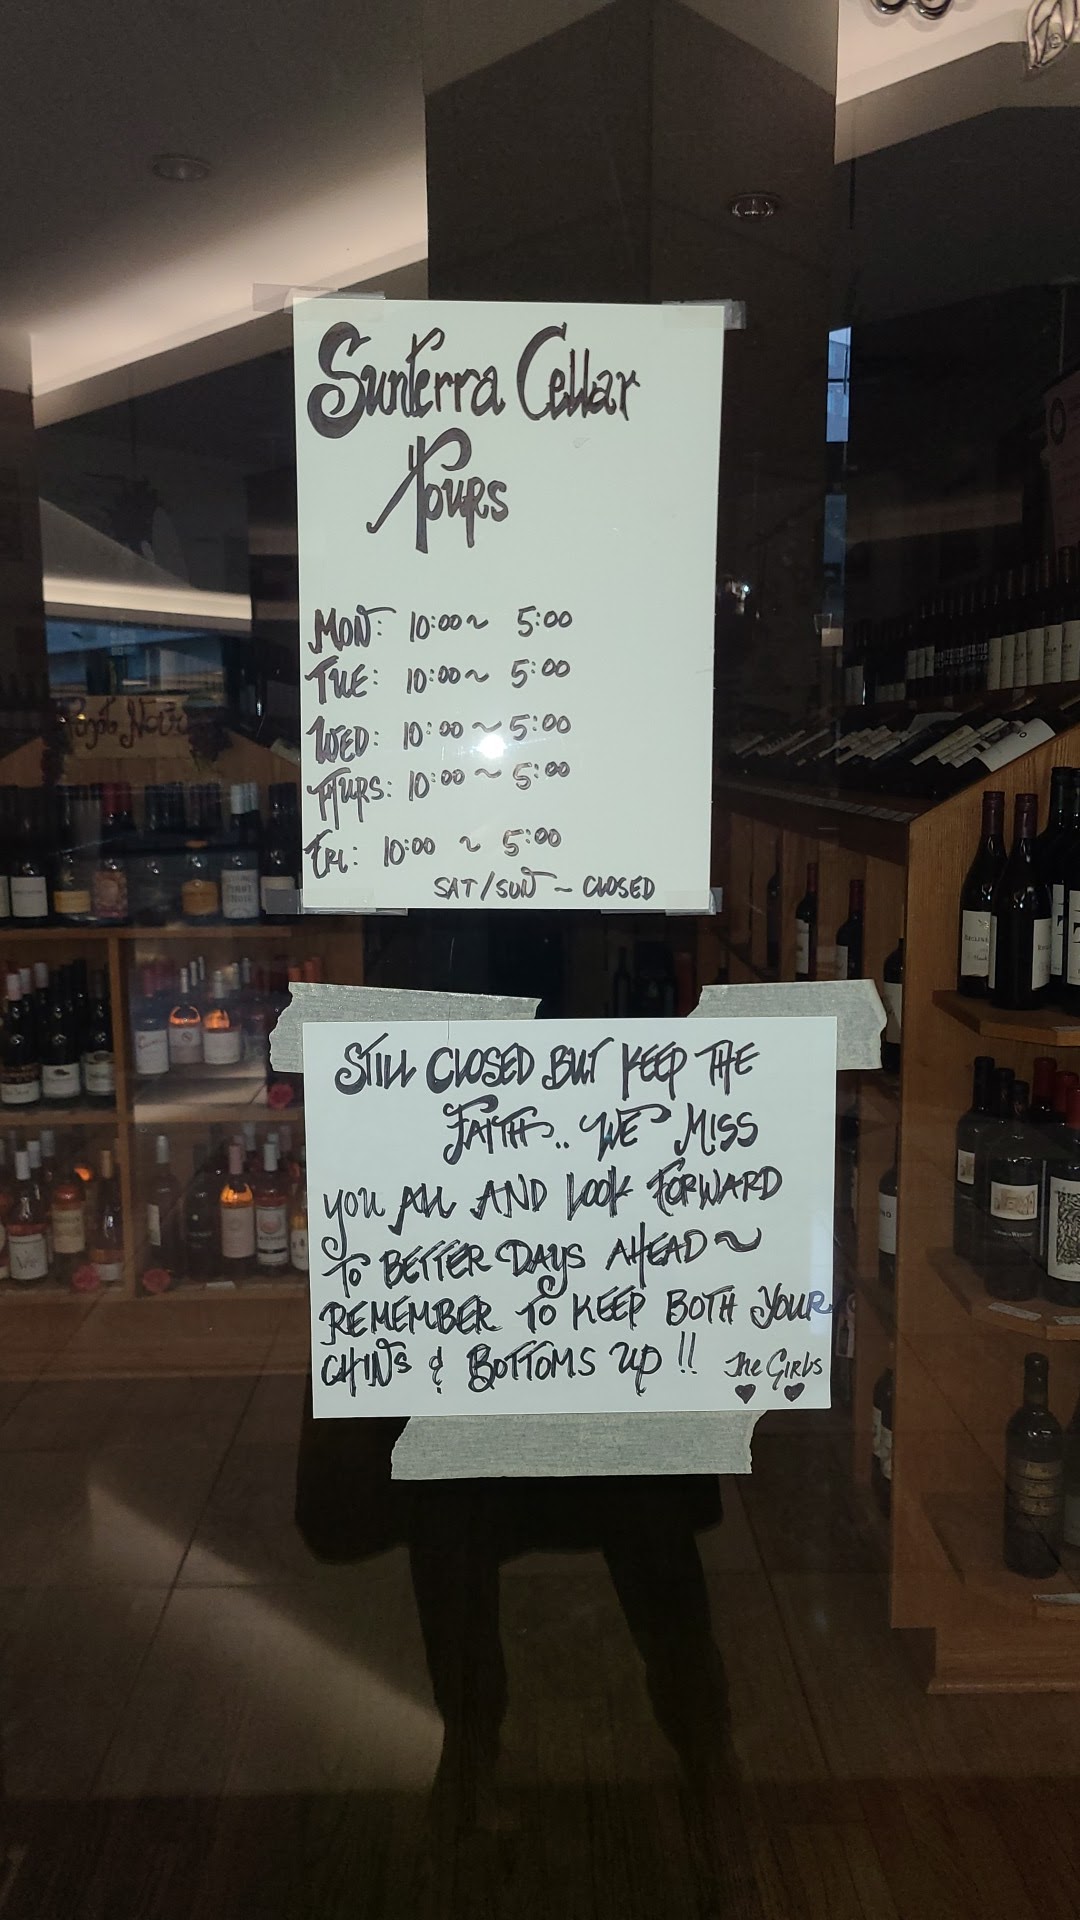 Sunterra Cellar
Hours
MON: 10:00 ~ 5:00
TUE: 10:00 ~ 5:00
WED: 10:00 ~ 5:00
THURS: 10:00 ~ 5:00
FRI: 10:00 ~ 5:00
SAT/SUN ~ CLOSED
STILL CLOSED BUT KEEP THE
FAITH.. WE MISS
YOU ALL AND LOOK FORWARD
TO BETTER DAYS AHEAD ~
REMEMBER TO KEEP BOTH YOUR
CHINS & BOTTOMS UP !! The GIRLS